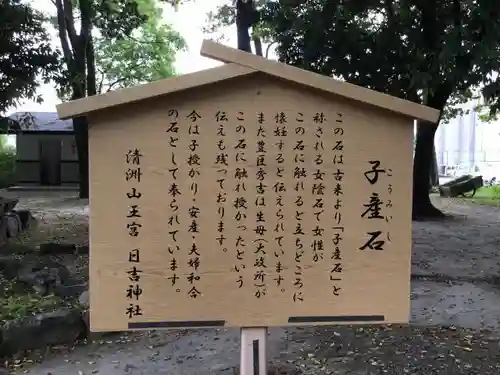 子産石
こうみいし
この石は古来より「子産石」と
祢される女陰石で女性が
この石に触れると立ちどころに
懐妊すると伝えられています。
また豊臣秀吉は生母(大政所)が
この石に触れ授かったという
伝えも残っております。
今は子授かり・安産・夫婦和合
の石として奉られています。
清洲山王宮 日吉神社